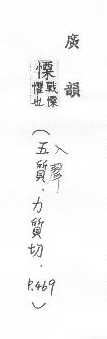 廣韻
慄 戰慄
懼也
(入聲
五質.力質切.
P.469)